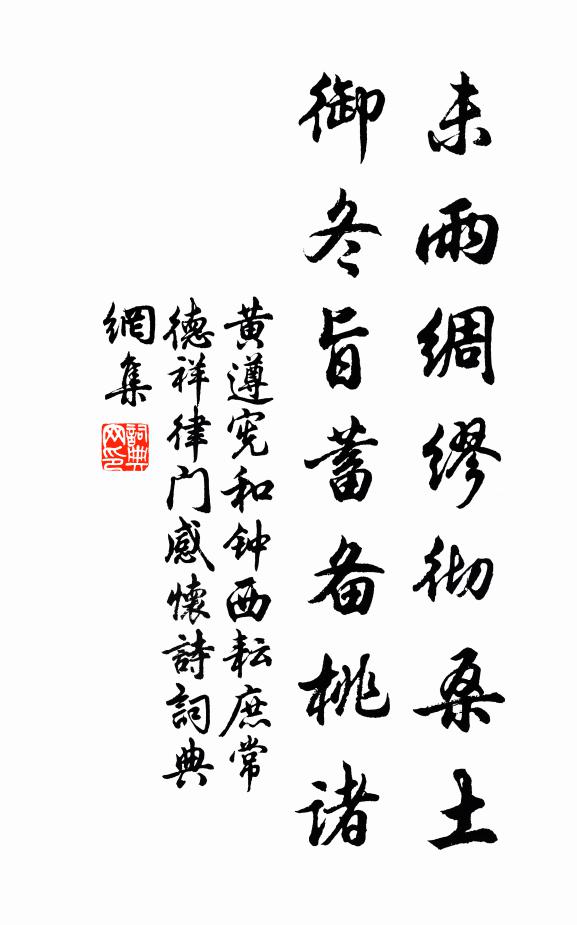 未雨綢缪彻桑土
御冬旨蓄备桃诸
黄遵宪和钟西耘庶常
德祥律门感懷詩詞典
網集
詞典網印